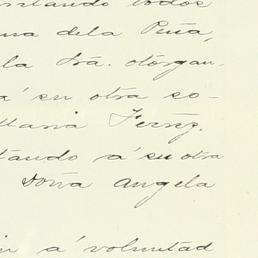 sitando todos
na dela Peña,
la Sra. otorgan-
a' su otra so-
Maria Ferrez.
tando a' su otra
Doña Angela
a' voluntad